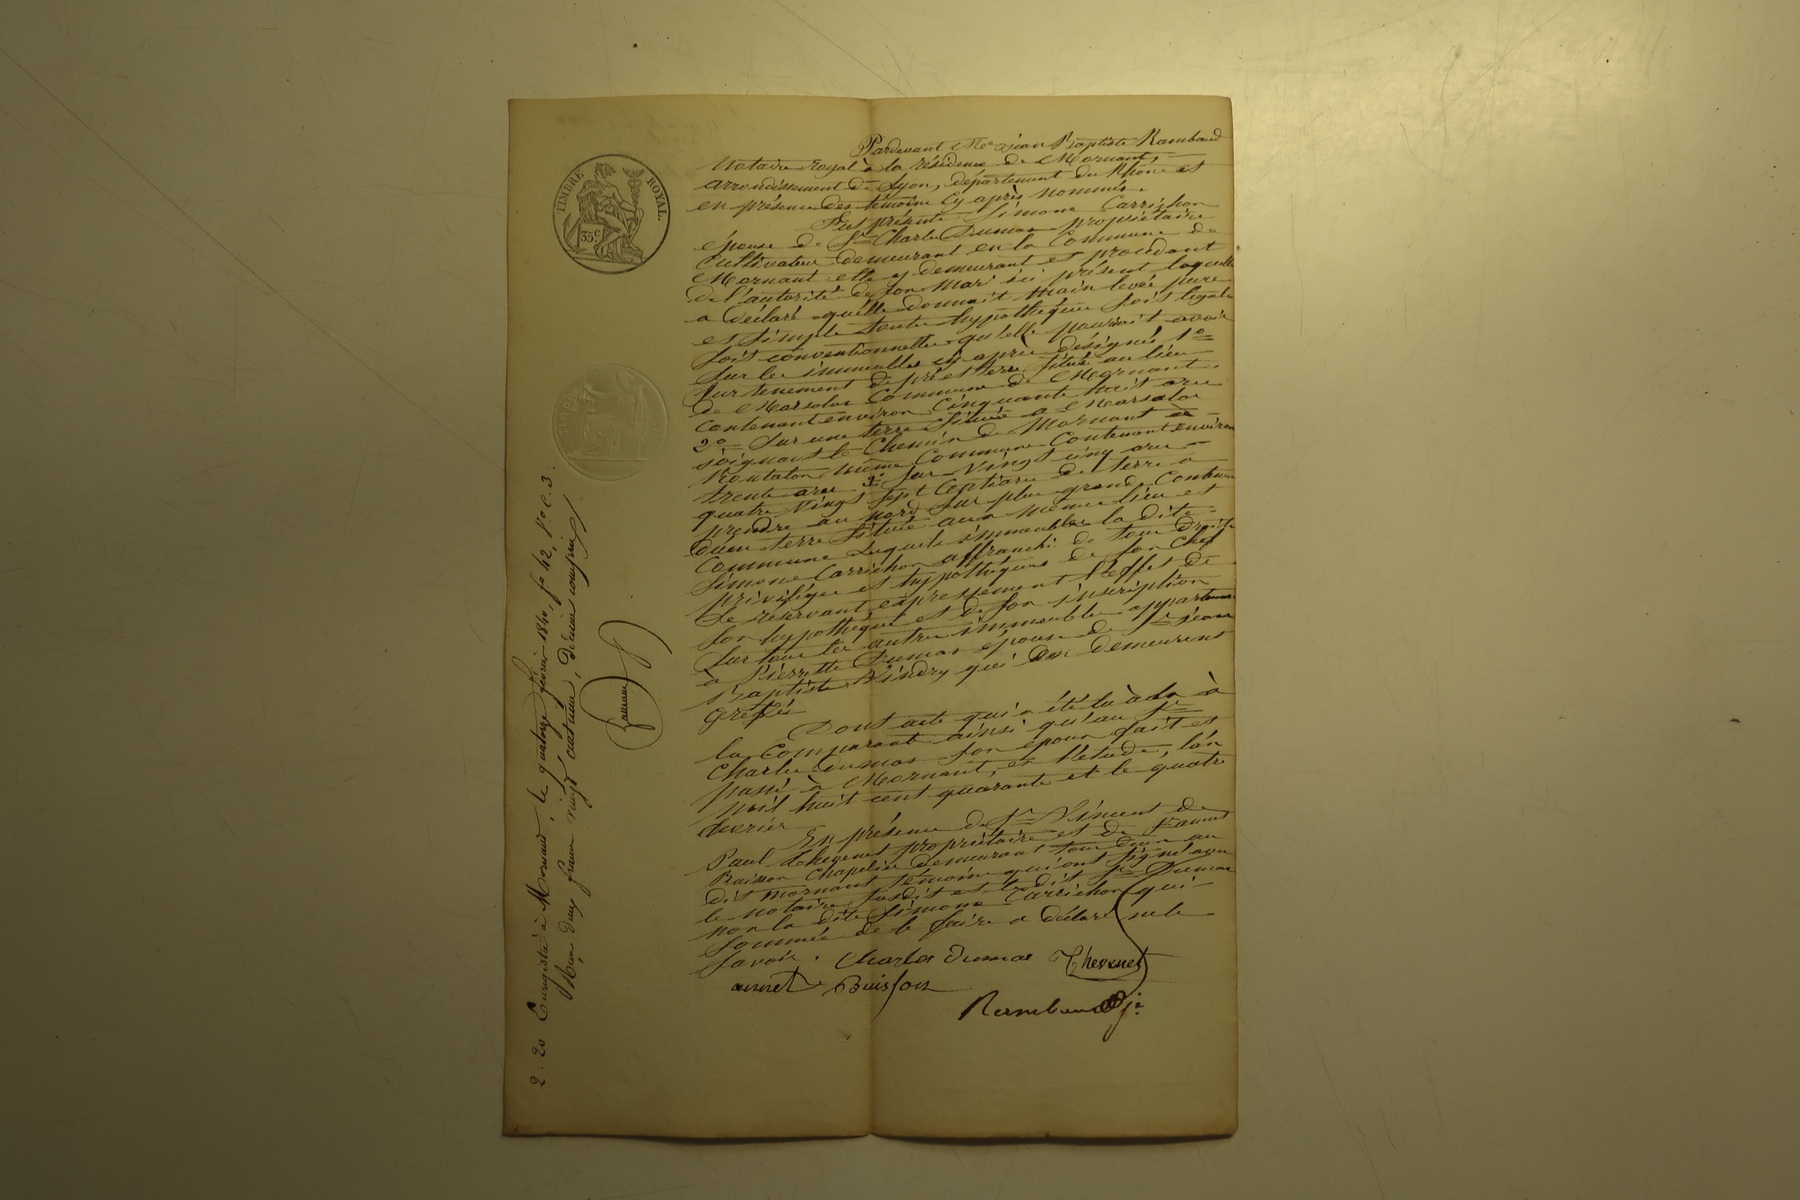 TIMBRE ROYAL.
35c
Pardevant Me Jean Baptiste Rambaud
Notaire royal à la résidence de Mornant,
arrondissement de Lyon, département du Rhône et
en présence des témoins cy après nommés.
Est présente Simone Carrichon
épouse de Sr Charles Dumas propriétaire
Cultivateur demeurant en la Commune de
Mornant elle y demeurant et procédant
de l'autorité de son Mari ici présent laquelle
a déclaré qu'elle donnait Main levée pure
et simple toute hypothèque soit légale
soit conventionnelle qu'elle pouvait avoir
sur les immeubles cy après désignés 1o
sur tenement de pré et terre situé au lieu
de Marsolas Commune de Mornant
contenant environ Cinquante huit ares
2o Sur une terre située a Marsolas
joignant le Chemin de Mornant à
Montalon même Commune Contenant environ
trente ares 3o Sur Vingt cinq ares
quatre Vingt sept Centiares de terre à
prendre au Nord sur plus grande Contenue
d'une terre située au même lieu et
Commune lesquels immeubles la dite
Simone Carrichon affranchi de tous Droits
privilèges et hypothèques de son Chef
se réservant expressement l'effet de
son hypothèque et de son inscription
sur tous les autres immeubles appartenant
à Pierrette Dumas épouse de Sr Jean
Baptiste Vindry qui demeurent
grefés
Dont acte qui a été lu à la
Comparante ainsi qu'au Sr
Charles Dumas son époux fait et
passé à Mornant, en l'étude, l'an
mil huit cent quarante et le quatre
fevrier
En présence de Sr Vincent de
Paul Thevenet propriétaire et de Sr annet
Buisson Chapelier demeurant tous deux au
dit Mornant témoins qui ont signé avec
le Notaire susdit et le dit Sr Dumas
non la dite Simone Carrichon qui
sommée de le faire a déclaré ne le
savoir.
Charles Dumas Thevenet
annet Buisson
Rambaud
2. 20 Enregistré à Mornant, le quatorze février 1840, fo 42, Vo c. 3.
Reçu deux francs vingt centimes, décime compris